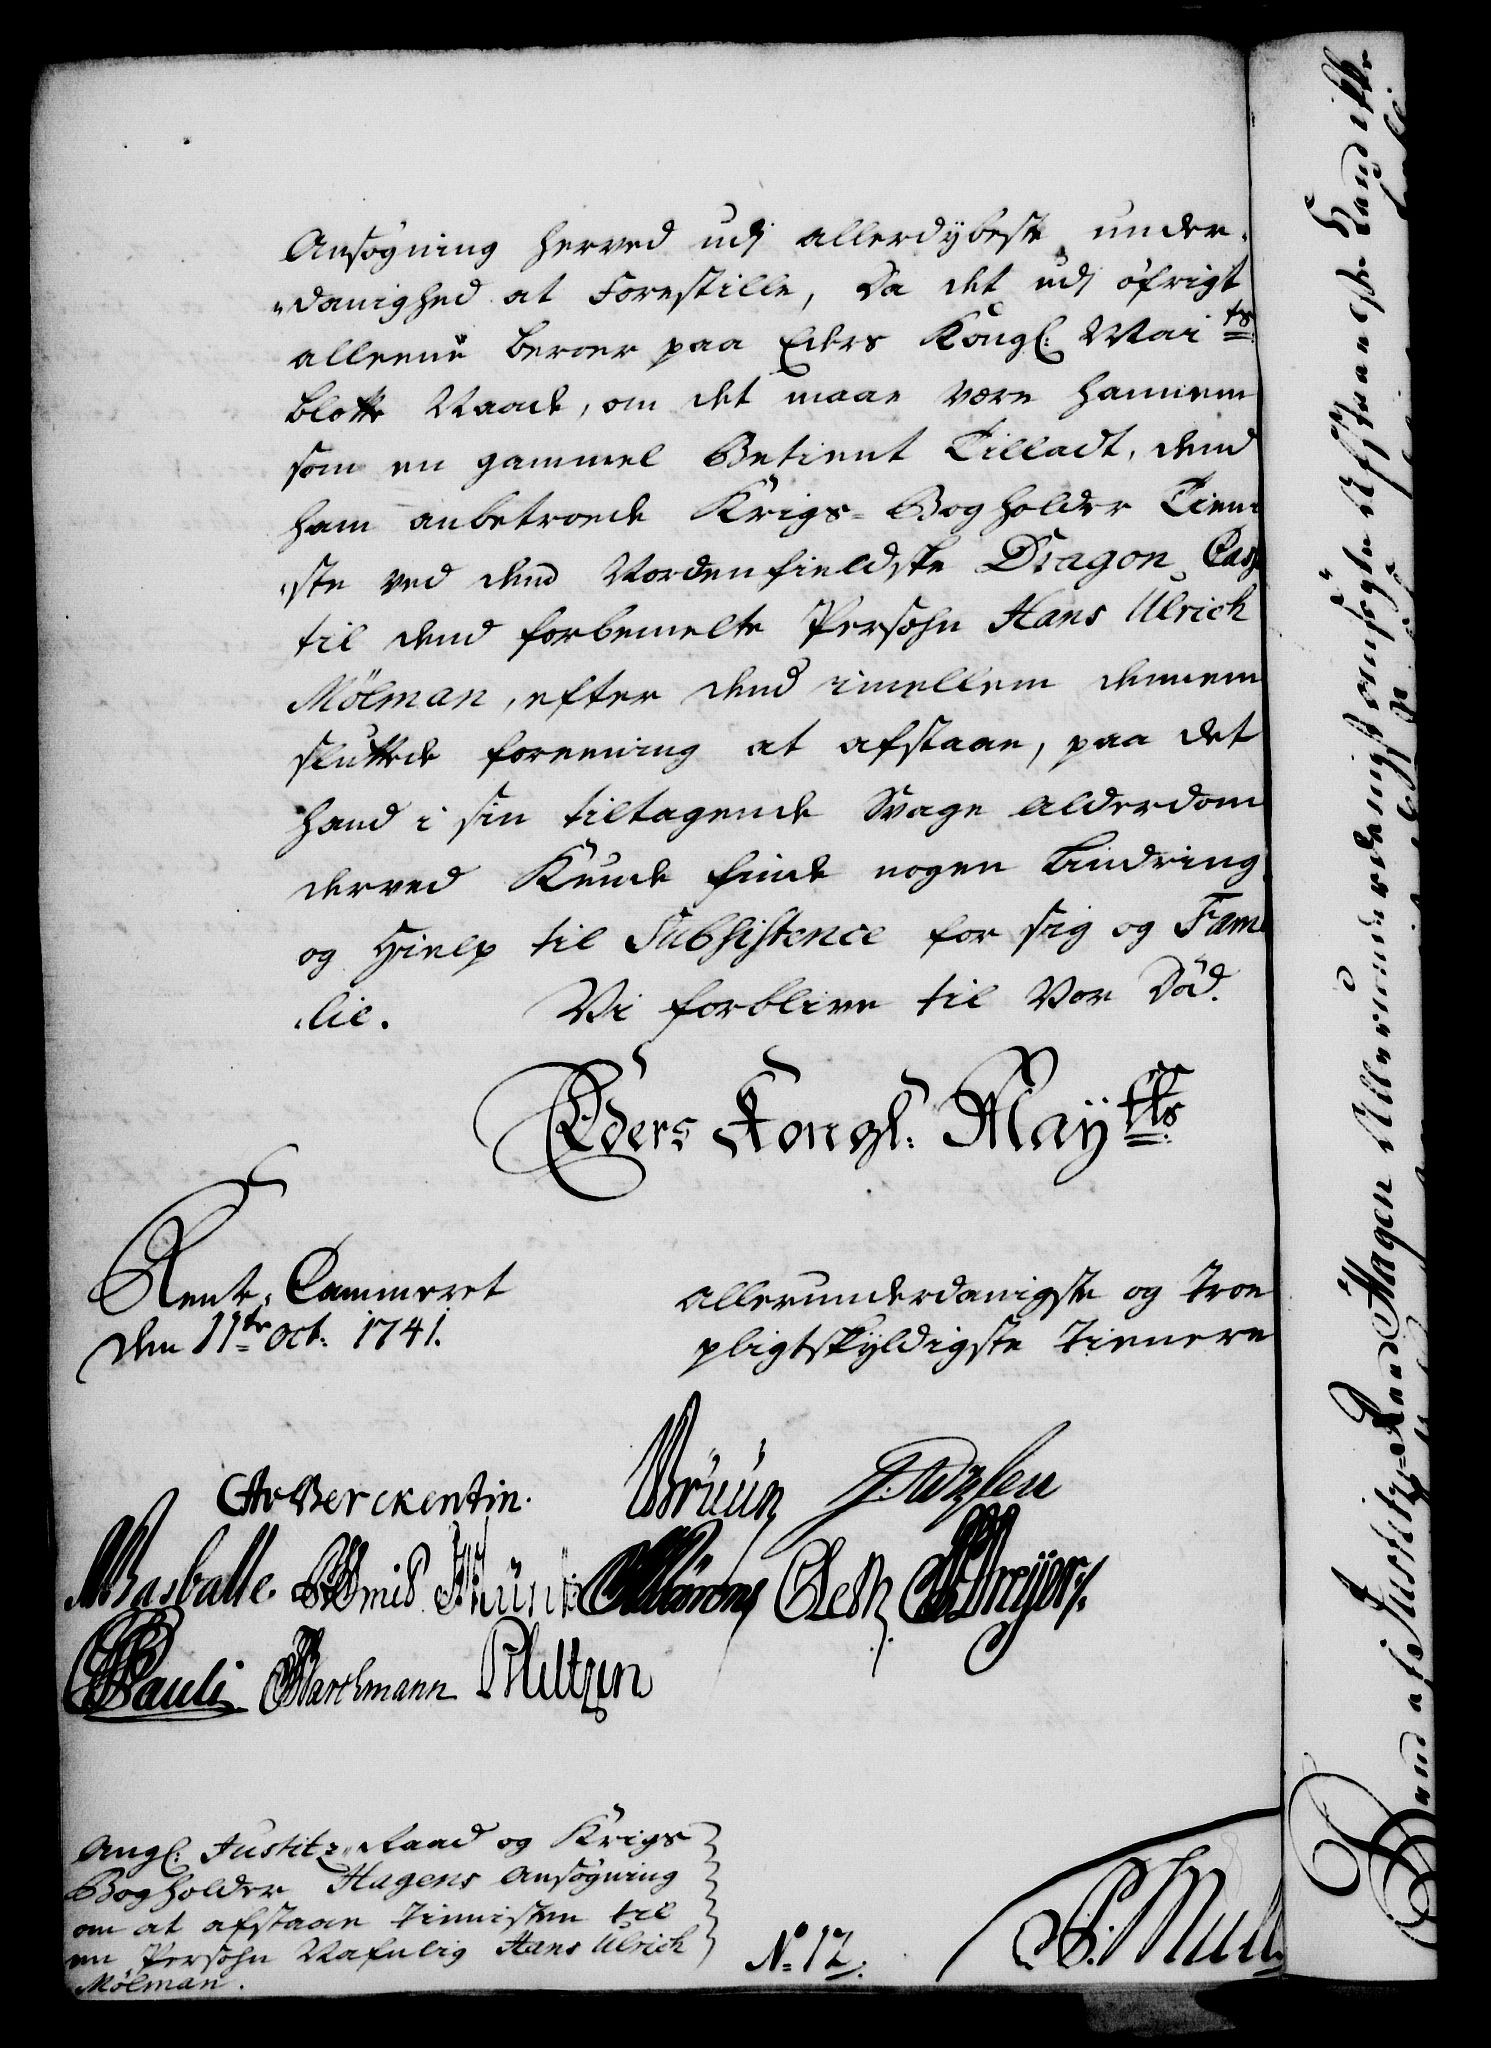 Ansögning herved udj allerdÿbeste under-
"danighed at Forestille, Da det udj öfrigt
alleene beroer paa Eders Kongl: Mai ts
blotte Naade, om det maae være hannem
som en gammel Betient Tilladt, dend
ham anbetroede Krigs-Bogholder Tiene
"ste ved dend Nordenfieldske Dragon Cass
til dend forbemelte Persohn Hans Ulrich
Mölman, efter dend imellem dennem
sluttede foreening at afstaae, paa det
hand i sin tiltagende Svage Alderdom
derved Kunde finde nogen Lindring
og Hielp til Subsistence for sig og Fami
"lie. Vi forblive til Vor Död.
Eders Kongl: Maÿtts
Rente-Cammeret
den 11te Oct: 1741.
allerunderdanigste og Troe
pligtskÿldigste Tienere
Berckentin. Bruun
Basballe.
Pauli Barthmann
Angl: Justitz-Raad og Krigs
Bogholder Hagens Ansögning
om at afstaae Tienisten til
en Persohn Nafnlig Hans Ulrich
Mölman.
No 12.
Hand af Justitz-Raad Hagen Allerunderdanigst ansögte Afstaaelse Hand ikke